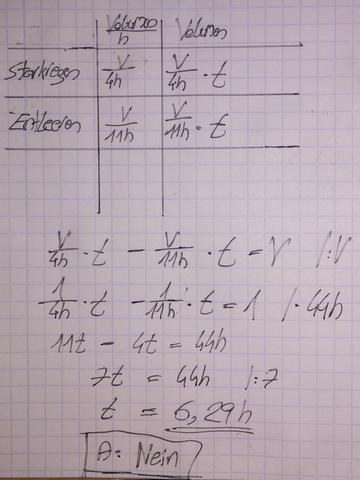 Volumen/h Volumen
Starkregen V/4h V/4h · t
Entleeren V/11h V/11h · t
V/4h · t - V/11h · t = V |:V
1/4h · t - 1/11h · t = 1 |· 44h
11t - 4t = 44h
7t = 44h |:7
t = 6,29h
A: Nein